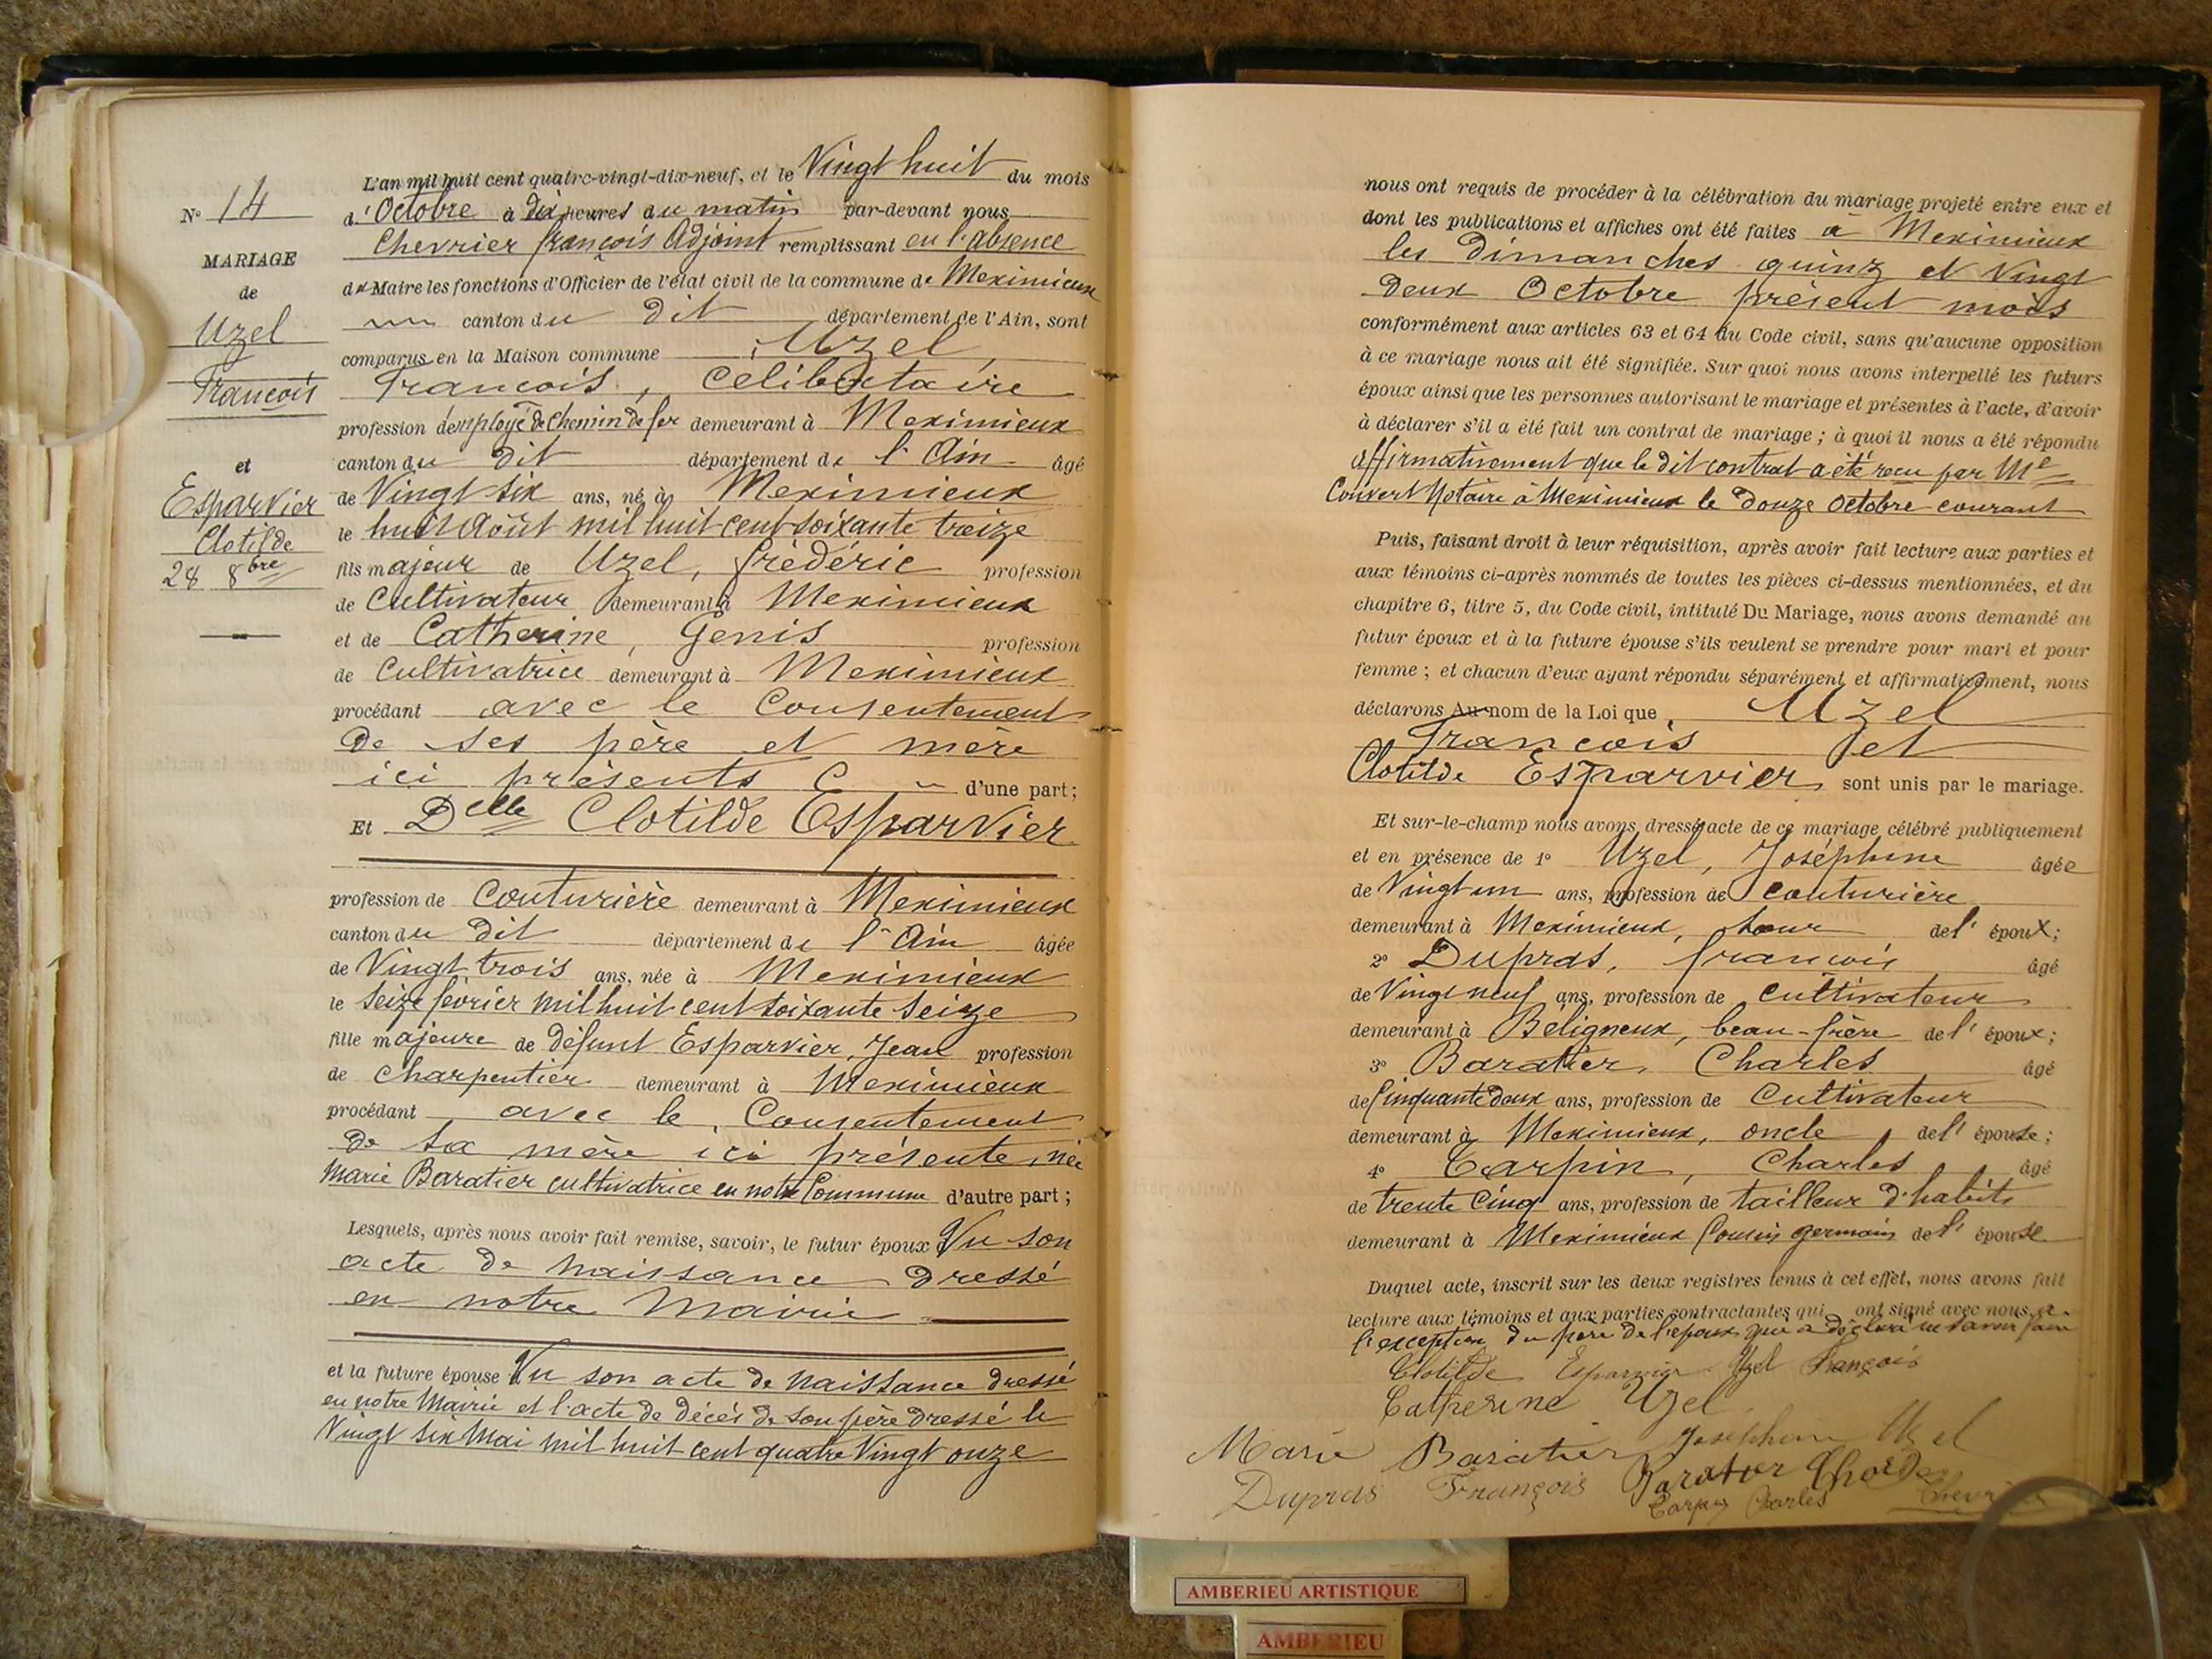 N° 14
MARIAGE
de
Uzel
François
et
Esparvier
Clotilde
28 8bre
L'an mil huit cent quatre-vingt-dix-neuf, et le Vingt huit du mois
d'Octobre à dix heures du matin par-devant nous
Chevrier françois Adjoint remplissant en l'absence
du Maire les fonctions d'Officier de l'état civil de la commune de Meximieux
canton du dit département de l'Ain, sont
comparus en la Maison commune Uzel,
François, Célibataire
profession d'employé de Chemin de fer demeurant à Meximieux
canton du dit département de l'Ain âgé
de Vingt six ans, né à Meximieux
le huit Août mil huit cent soixante treize
fils majeur de Uzel, frédéric profession
de Cultivateur demeurant à Meximieux
et de Catherine, Genis profession
de Cultivatrice demeurant à Meximieux
procédant avec le Consentement
de ses père et mère
ici présents d'une part;
Et Delle Clotilde Esparvier
profession de Couturière demeurant à Meximieux
canton du dit département de l'Ain âgée
de Vingt trois ans, née à Meximieux
le seize février mil huit cent soixante seize
fille majeure de défunt Esparvier, Jean profession
de Charpentier demeurant à Meximieux
procédant avec le Consentement
de sa mère ici présente, née
Marie Baratier cultivatrice en notre Commune d'autre part;
Lesquels, après nous avoir fait remise, savoir, le futur époux Vu son
acte de naissance dressé
en notre Mairie
et la future épouse Vu son acte de naissance dressé
en notre Mairie et l'acte de décés de son père dressé le
Vingt six Mai mil huit cent quatre Vingt onze
nous ont requis de procéder à la célébration du mariage projeté entre eux et
dont les publications et affiches ont été faites à Meximieux
les dimanches quinz et Vingt
deux Octobre présent mois
conformément aux articles 63 et 64 du Code civil, sans qu'aucune opposition
à ce mariage nous ait été signifiée. Sur quoi nous avons interpellé les futurs
époux ainsi que les personnes autorisant le mariage et présentes à l'acte, d'avoir
à déclarer s'il a été fait un contrat de mariage; à quoi il nous a été répondu
affirmativement que le dit contrat a été recu par Me
Convert Notaire à Meximieux le douze Octobre courant
Puis, faisant droit à leur réquisition, après avoir fait lecture aux parties et
aux témoins ci-après nommés de toutes les pièces ci-dessus mentionnées, et du
chapitre 6, titre 5, du Code civil, intitulé Du Mariage, nous avons demandé au
futur époux et à la future épouse s'ils veulent se prendre pour mari et pour
femme; et chacun d'eux ayant répondu séparément et affirmativement, nous
déclarons Au nom de la Loi que Uzel
François et
Clotilde Esparvier sont unis par le mariage.
Et sur-le-champ nous avons dressé acte de ce mariage célébré publiquement
et en présence de 1° Uzel, Joséphine âgée
de Vingt un ans, profession de couturière
demeurant à Meximieux, sœur de l'époux;
2° Dupras, francois âgé
de Vingt neuf ans, profession de cultivateur
demeurant à Béligneux, beau-frère de l'époux;
3° Baratier, Charles âgé
de Cinquante deux ans, profession de Cultivateur
demeurant à Meximieux, oncle de l'épouse;
4° Carpin, Charles âgé
de trente Cinq ans, profession de tailleur d'habits
demeurant à Meximieux Cousin germain de l'épouse
Duquel acte, inscrit sur les deux registres tenus à cet effet, nous avons fait
lecture aux témoins et aux parties contractantes qui ont signé avec nous, à
l'exception du père de l'époux qui a déclaré ne savoir faire
Clotilde Esparvier Uzel François
Catherine Uzel
Marie Baratier Joséphine Uzel
Dupras François Baratier Charles
Carpin Charles Chevrier
AMBERIEU ARTISTIQUE
AMBERIEU